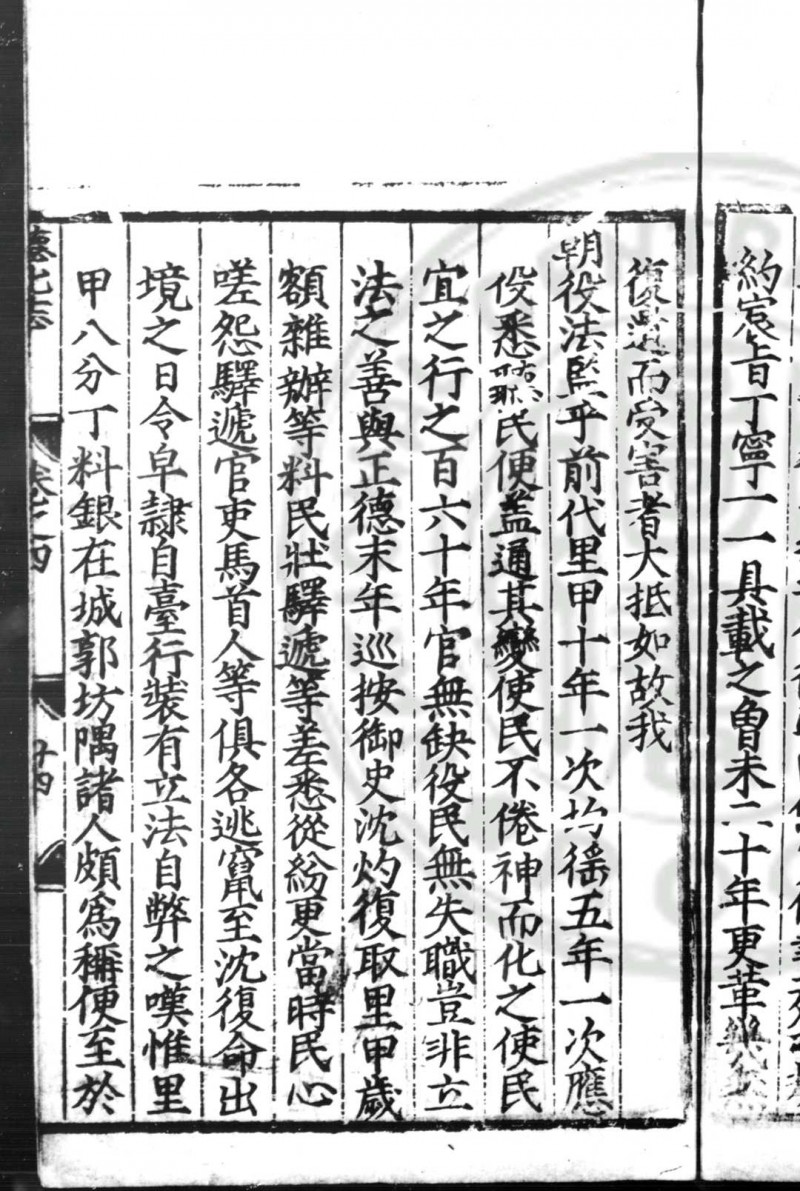 約㝡旨丁寧一一具載之曾未二十年更革
復還而受害者大抵如故我
朝役法監乎前代里甲十年一次均徭五年一次應
役悉民便蓋通其變使民不倦神而化之使民
宜之行之百六十年官無缺役民無失職豈非立
法之善與正德末年巡按御史沈灼復取里甲歲
額雜辦等料民壯驛遞等差悉從紛更當時民心
嗟怨驛遞官吏馬首人等俱各逃竄至沈復命出
境之日令皁隷自臺行裝有立法自弊之嘆惟里
甲八分丁料銀在城郭坊隅諸人頗爲稱便至於
德化志
卷之四
廿四